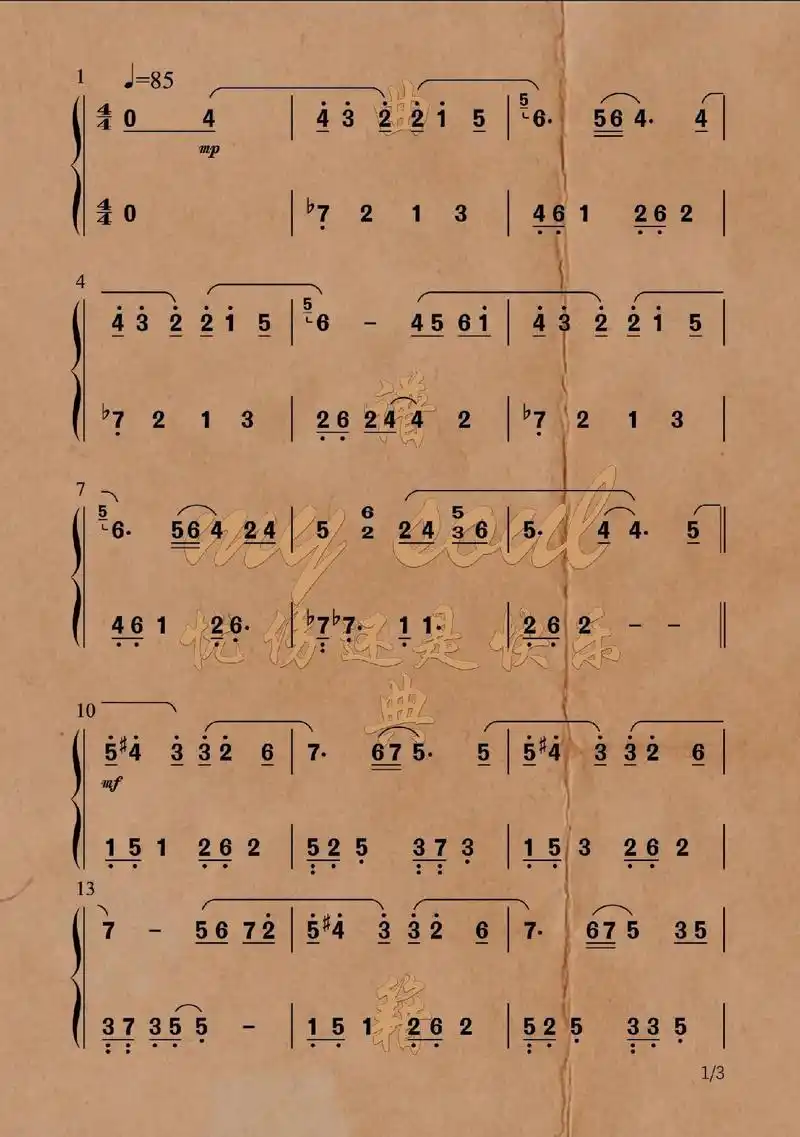 1 ♩=85
4/4 0 4 | 4̇ 3̇ 2̇ 2̇ 1̇ 5 | 5 6· 56 4· 4 |
mp
4/4 0 | ♭7̣ 2 1 3 | 4̣ 6̣ 1 2̣ 6̣ 2 |
4
4̇ 3̇ 2̇ 2̇ 1̇ 5 | 5 6 – 45 61̇ | 4̇ 3̇ 2̇ 2̇ 1̇ 5 |
♭7̣ 2 1 3 | 2̣ 6̣ 2 4 4 2 | ♭7̣ 2 1 3 |
7
5 6· 56 4 24 | 5 6/2 24 5/3 6 | 5· 4 4· 5 ||
4̣ 6̣ 1 2̣ 6̣· | ♭7̣ ♭7̣· 1̣ 1· | 2̣ 6̣ 2 – – ||
10
5̇ ♯4̇ 3̇ 3̇ 2̇ 6 | 7· 67 5· 5 | 5̇ ♯4̇ 3̇ 3̇ 2̇ 6 |
mf
1̣ 5̣ 1 2̣ 6̣ 2 | 5̣ 2̣ 5̣ 3̣ 7̣ 3̣ | 1̣ 5̣ 3 2̣ 6̣ 2 |
13
7 – 56 72̇ | 5̇ ♯4̇ 3̇ 3̇ 2̇ 6 | 7· 67 5 35 |
3̣ 7̣ 3̣ 5̣ 5̣ – | 1̣ 5̣ 1 2̣ 6̣ 2 | 5̣ 2̣ 5̣ 3̣ 3̣ 5̣ |
典
谱
my soul
忧伤还是快乐
典
籍
1/3